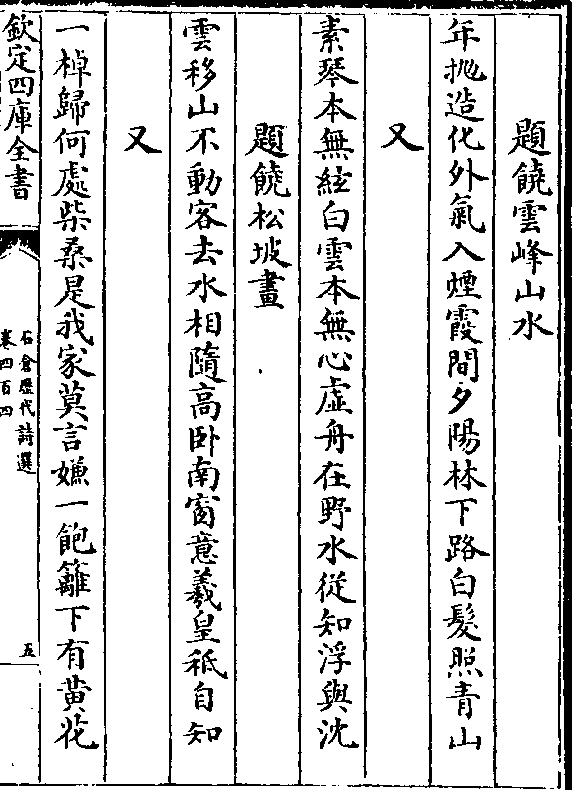 題饒雲峰山水
年抛造化外氣入煙霞間夕陽林下路白髮照青山
又
素琴本無絃白雲本無心虛舟在野水從知浮與沈
題饒松坡畫
雲移山不動客去水相隨高卧南窗意羲皇秪自知
又
一棹歸何處柴桑是我家莫言嫌一飽籬下有黄花
欽定四庫全書
石倉歷代詩選
卷四百四
五